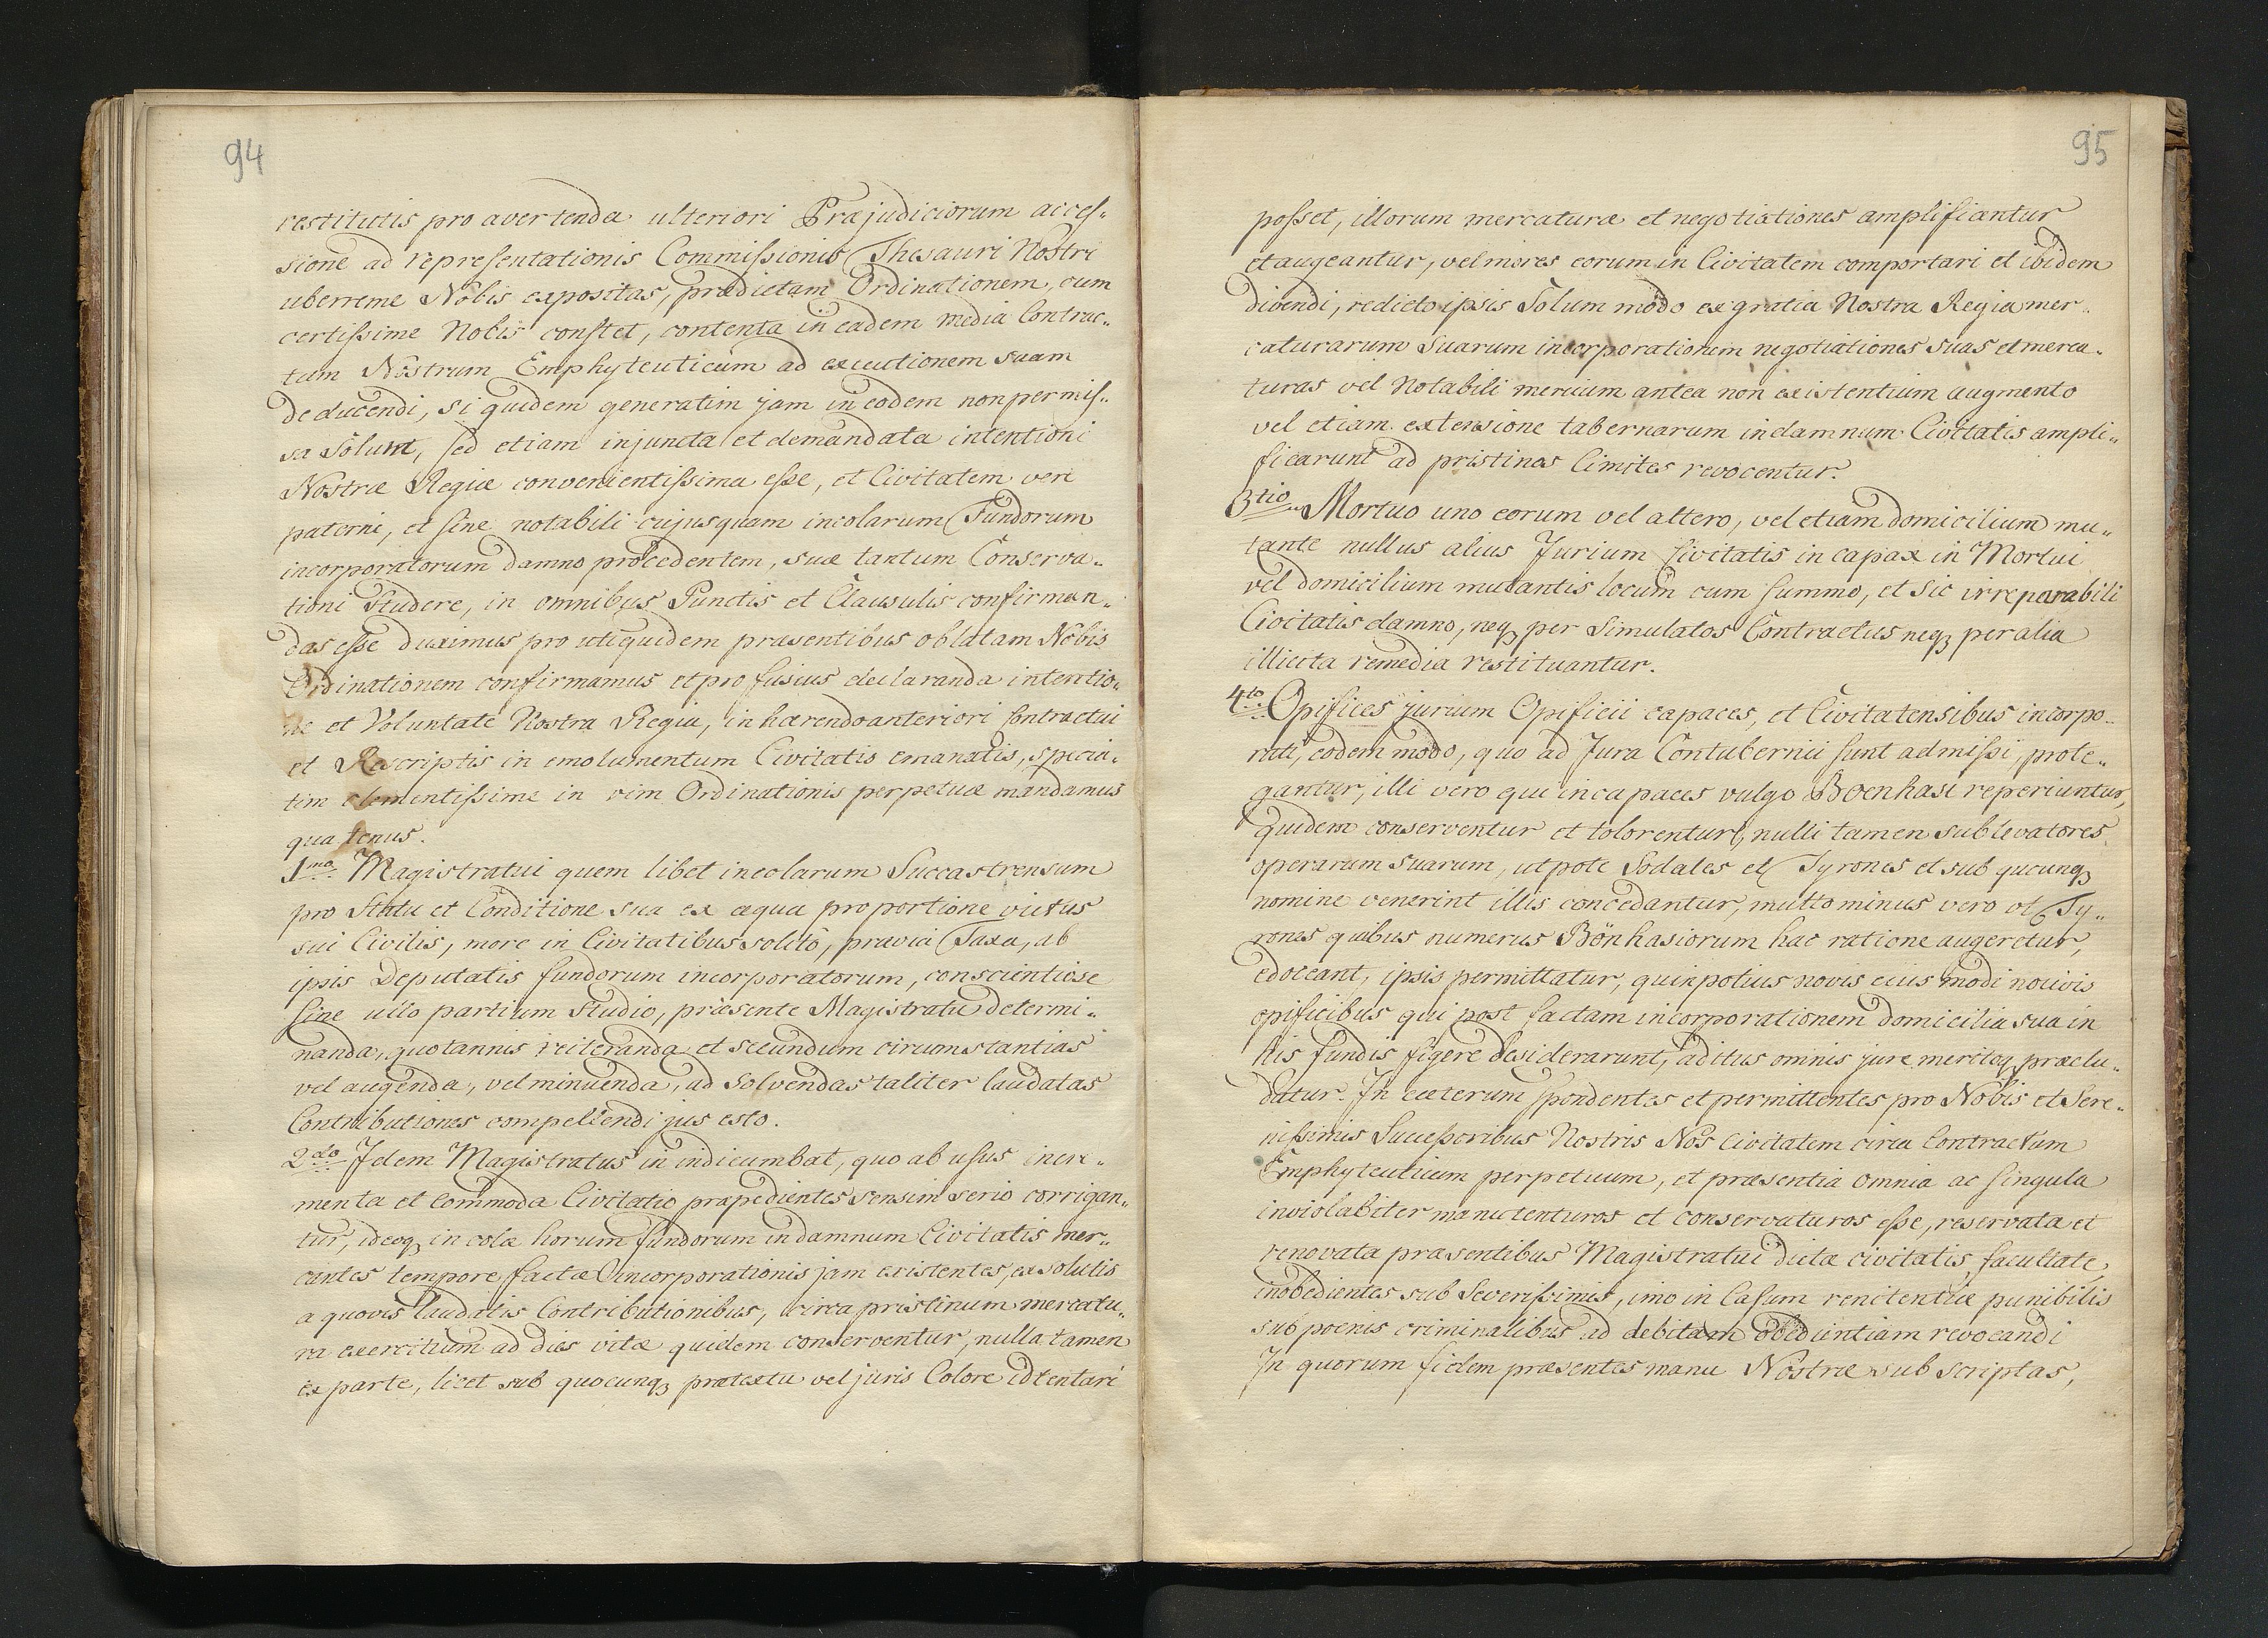 94
restitutis pro avertenda ulteriori Præjudiciorum acces„
sione ad repræsentationis Commissionis Thesauri Nostri
uberreme Nobis expositas, prædictam Ordinationem, cum
certissime Nobis constet, contenta in eadem media Contrac„
tum Nostrum Emphyteuticum ad executionem suam
deducendi, si quidem generatim jam in eodem non permis„
sa solum, sed etiam injuncta et demandata intentioni
Nostræ Regiæ convenientissima esse, et Civitatem vere
paterni, et sine notabili cujusquam incolarum Fundorum
incorporatorum damno procedentem, suæ tantum Conserva„
tioni studere, in omnibus Punctis et Clausulis confirman„
das esse duximus pro uti quidem præsentibus oblatam Nobis
Ordinationem confirmamus et pro fusius declaranda intentio„
ne et Voluntate Nostra Regia, in hærendo anteriori Contractui
et Rescriptis in emolumentum Civitatis emanatis, specia„
tim clementissime in vim Ordinationis perpetuæ mandamus
quatenus.
1mo Magistratui quem libet incolarum Succastrensum
pro Statu et Conditione sua ex æqua proportione victus
sui Civilis, more in Civitatibus solitô, prævia Taxa, ab
ipsis Deputatis fundorum incorporatorum, conscientiose
sine ullo partium studio, præsente Magistratu determi„
nanda, quotannis reiteranda et secundum circumstantias
vel augenda, vel minuenda, ad solvendas taliter laudatas
Contributiones compellendi jus esto.
2do Idem Magistratus in indicumbat, quo ab usus incre„
menta et commoda Civitatis præpedientes sensim serio corrigan„
tur, ideoq in colæ horum fundorum in damnum Civitatis mer„
cantes tempore factæ incorporationis jam existentes, exsolutis
a quovis laudatis Contributionibus, circa pristinum mercatu„
ra exercitium ad dies vitæ quidem conserventur, nulla tamen
ex parte, licet sub quocunq prætextu vel juris Colore idtentari
95
posset, illorum mercaturæ et negotiationes amplifiantur
et augeantur, vel meres eorum in Civitatem comportari et ibidem
divendi, redicto ipsis solum modo ex gratia Nostra Regia mer„
caturarum suarum incorporationem negotiationes suas et merca„
turas vel notabili mercium antea non existentium augmento
vel etiam extensione tabernarum in damnum Civitatis ampli„
ficarunt ad pristinos limites revocentur.
3tio Mortuo uno eorum vel altero, vel etiam domicilium mu„
tante nullus alius Jurium Civitatis in capax in Mortui
vel domicilium mutantis locum cum summo, et sic irreparabili
Civitatis damno, neq per simulatos Contractus neq per alia
illicita remedia restituantur.
4to Opifices jurium Opificii capaces, et Civitatensibus incorpo„
rati, eodem modo, quo ad Jura Contubernii sunt admissi, prote„
gantur, illi vero qui incapaces vulgo Boenhasi reperiuntur,
quidem conserventur et tolorentur, nulli tamen sublevatores
operarum suarum, ut pote Sodales et Tyrones et sub qucunq
nomine venerint illis concedantur, multo minus vero ut Ty„
rones quibus numerus Bönhasiorum hac ratione augeretur,
edoceant, ipsis permittatur, quin potius novis eius modi novivis
opificibus qui post factam incorporationem domicilia sua in
his fundis figere desiderarunt, aditus omnis jure meritoq præclu„
datur. In cæterum spondentes et permittentes pro Nobis et Sere„
nissimis Successoribus Nostris Nos Civitatem circa Contractum
Emphyteuticum perpetuum, et præsentia omnia ac singula
inviolabiter manutenturos et conservaturos esse, reservata et
renovata præsentibus Magistratui dictæ civitatis, facultate,
inobedientes sub severissimis, imo in Casum renitentiæ punibilis
sub poenis criminalibus ad debitam obedientiam revocandi
In quorum fidem præsentes manu Nostræ sub scriptas,